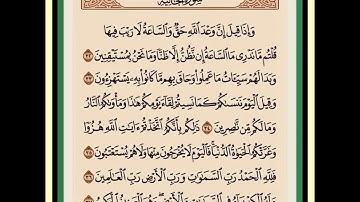 سورة الجاثية
وَإِذَا قِيلَ إِنَّ وَعْدَ اللَّهِ حَقٌّ وَالسَّاعَةُ لَا رَيْبَ فِيهَا
قُلْتُم مَّا نَدْرِي مَا السَّاعَةُ إِن نَّظُنُّ إِلَّا ظَنًّا وَمَا نَحْنُ بِمُسْتَيْقِنِينَ ٣٢
وَبَدَا لَهُمْ سَيِّئَاتُ مَا عَمِلُوا وَحَاقَ بِهِم مَّا كَانُوا بِهِ يَسْتَهْزِءُونَ ٣٣
وَقِيلَ الْيَوْمَ نَنسَاكُمْ كَمَا نَسِيتُمْ لِقَاءَ يَوْمِكُمْ هَٰذَا وَمَأْوَاكُمُ النَّارُ
وَمَا لَكُم مِّن نَّاصِرِينَ ٣٤ ذَٰلِكُم بِأَنَّكُمُ اتَّخَذْتُمْ آيَاتِ اللَّهِ هُزُوًا
وَغَرَّتْكُمُ الْحَيَاةُ الدُّنْيَا فَالْيَوْمَ لَا يُخْرَجُونَ مِنْهَا وَلَا هُمْ يُسْتَعْتَبُونَ
٣٥ فَلِلَّهِ الْحَمْدُ رَبِّ السَّمَاوَاتِ وَرَبِّ الْأَرْضِ رَبِّ الْعَالَمِينَ
٣٦ وَلَهُ الْكِبْرِيَاءُ فِي السَّمَاوَاتِ وَالْأَرْضِ وَهُوَ الْعَزِيزُ الْحَكِيمُ